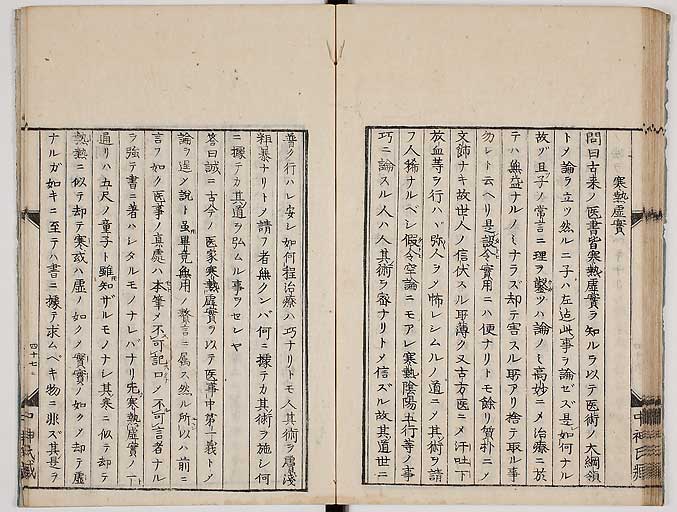 寒熱虚實
問曰古来ノ医書皆寒熱虚實ヲ知ルヲ以テ医術ノ大綱領
トメ論ヲ立ツ然ルニ子ハ左迠此事ヲ論ゼズ是如何ナル
故ゾ且子ノ常言ニ理ヲ鑿ツハ論ノミ高妙ニメ治療ニ於
テハ無益ナルノミナラズ却テ害スル所アリ捨テ取ル事
勿レト云ヘリ是設令實用ニハ便ナリトモ餘リ質朴ニメ
文飾ナキ故世人ノ信伏スル所薄ク又古方医ニメ汗吐下
放血等ヲ行ハヾ弥人ヲメ怖レシムルノ道ニメ其術ヲ請
フ人稀ナルベシ假令空論ニモアレ寒熱陰陽五行等ノ事
巧ニ論スル人ハ人其術ヲ審ナリトメ信ズル故其道世ニ
普ク行ハレ安シ如何程治療ハ巧ナリトモ人其術ヲ麤淺
粗暴ナリトメ請フ者無クンバ何ニ據テカ其術ヲ施シ何
ニ據テカ其道ヲ弘ムル事ヲセレヤ
答曰誠ニ古今ノ医家寒熱虚實ヲ以テ医事中第一義トメ
論ヲ逞ノ説ト虽畢竟無用ノ贅言ニ属ス然ル所以ハ前ニ
言フ如ク医事ノ真處ハ本筆メ不可記口メ不可言者ナル
ヲ強テ書ニ著ハシタルモノナレバナリ先寒熱虚實ノ一下
通リハ五尺ノ童子ト雖知ザルモノナレ其寒ニ似テ却テ
熱熱ニ似テ却テ寒或ハ虚ノ如クメ實實ノ如クメ却テ虚
ナルガ如キニ至テハ書ニ據テ求ムベキ物ニ非ズ其是ヲ
四十七
中神氏藏